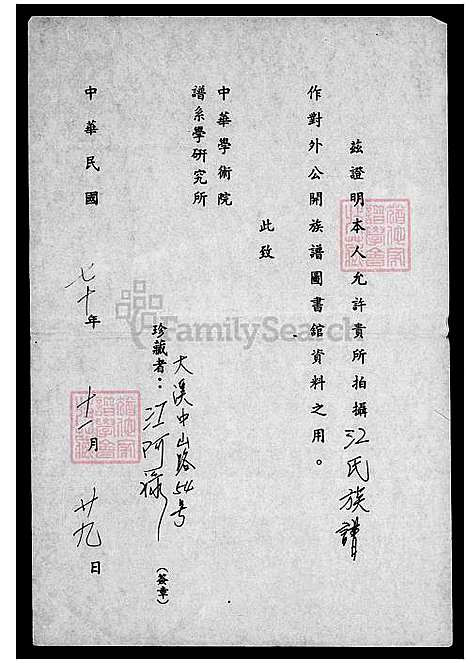 茲證明本人允許貴所拍攝江氏族譜
作對外公開族譜圖書館資料之用。
此致
中華學術院
譜系學研究所
大溪中山路54号
珍藏者：江阿
(簽章)
中華民國七十年十一月廿九日
FamilySearch